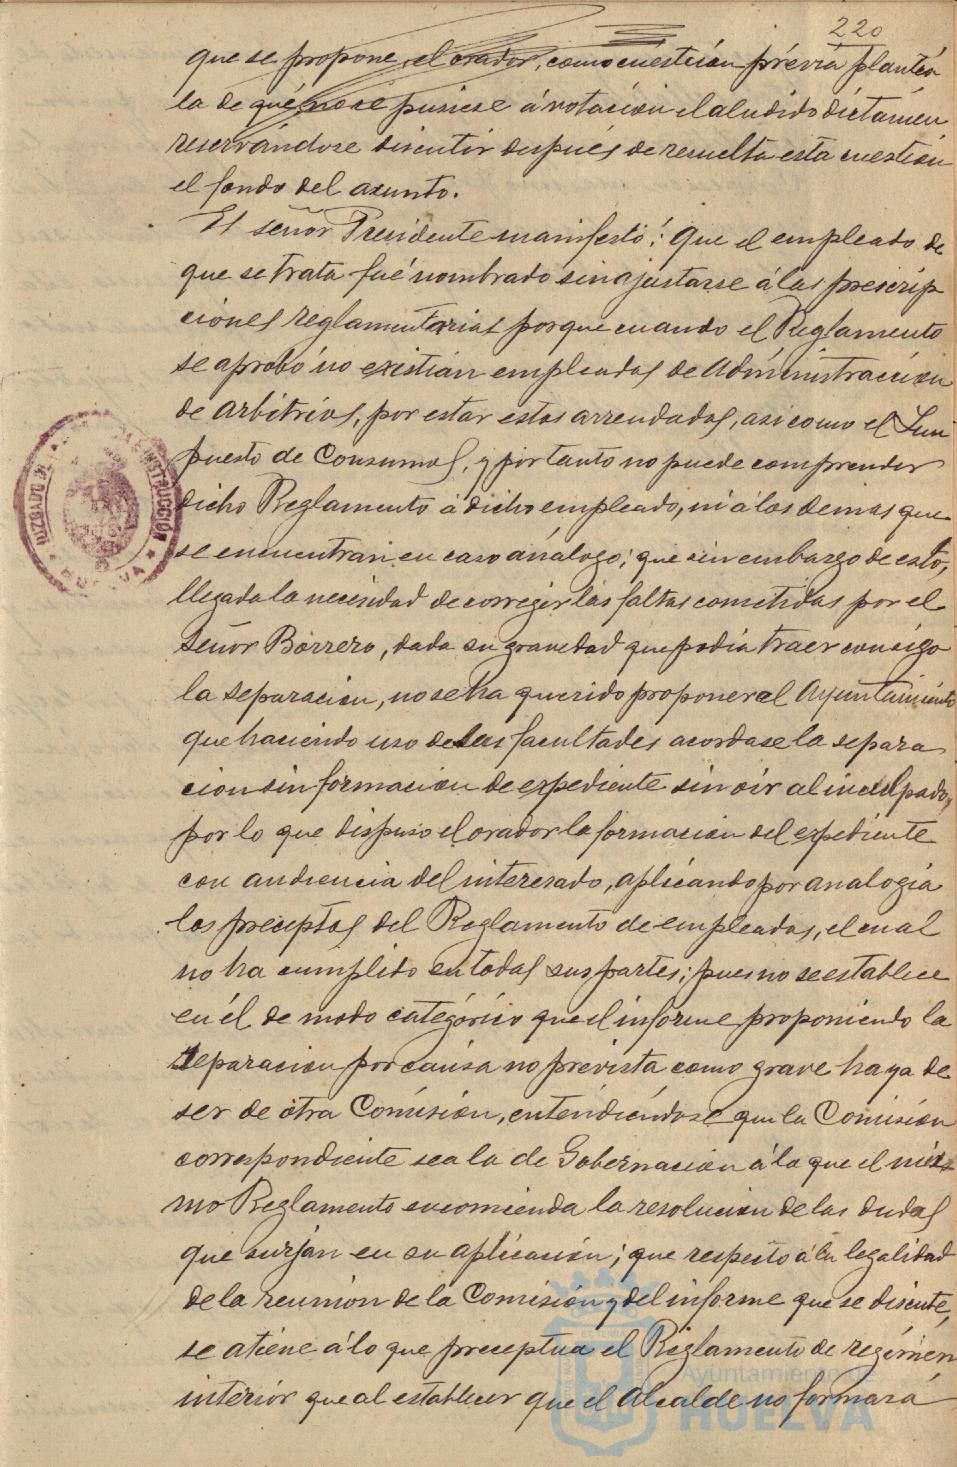 220
que se propone, el orador, como cuestión prévia plantea
la de qué no se pusiese á votación el aludido dictámen
reservándose discutir después de resuelta esta cuestión
el fondo del asunto.
El señor Presidente manifestó: Que el empleado de
que se trata fué nombrado sin ajustarse á las prescrip
ciones reglamentarias porque cuando el Reglamento
se aprobó no existían empleados de Administración
de Arbitrios, por estar estos arrendados, asi como el Im
puesto de Consumos, y por tanto no puede comprender
dicho Reglamento á dicho empleado, ni á los demas que
se encuentran en caso análogo; que sin embargo de esto,
llegada la necesidad de corregir las faltas cometidas por el
Señor Borrero, dada su gravedad que podia traer consigo
la separación, no se ha querido proponer al Ayuntamiento
que haciendo uso de sus facultades acordase la separa
cion sin formacion de expediente sin oir al inculpado,
por lo que dispuso el orador la formación del expediente
con audiencia del interesado, aplicando por analogía
los preceptos del Reglamento de empleados, el cual
no ha cumplido en todas sus partes; pues no se establece
en él de modo categórico que el informe proponiendo la
separacion por causa no prevista como grave haya de
ser de otra Comisión, entendiéndose que la Comisión
correspondiente sea la de Gobernacion á la que el mis-
mo Reglamento encomienda la resolucion de las dudas
que surjan en su aplicación; que respecto á la legalidad
de la reunión de la Comisión y del informe que se discute,
se atiene á lo que preceptua el Reglamento de regimen
interior que al establecer que el Alcalde no formará
JUZGADO DE INSTRUCCIÓN
HUELVA
Ayuntamiento de
HUELVA